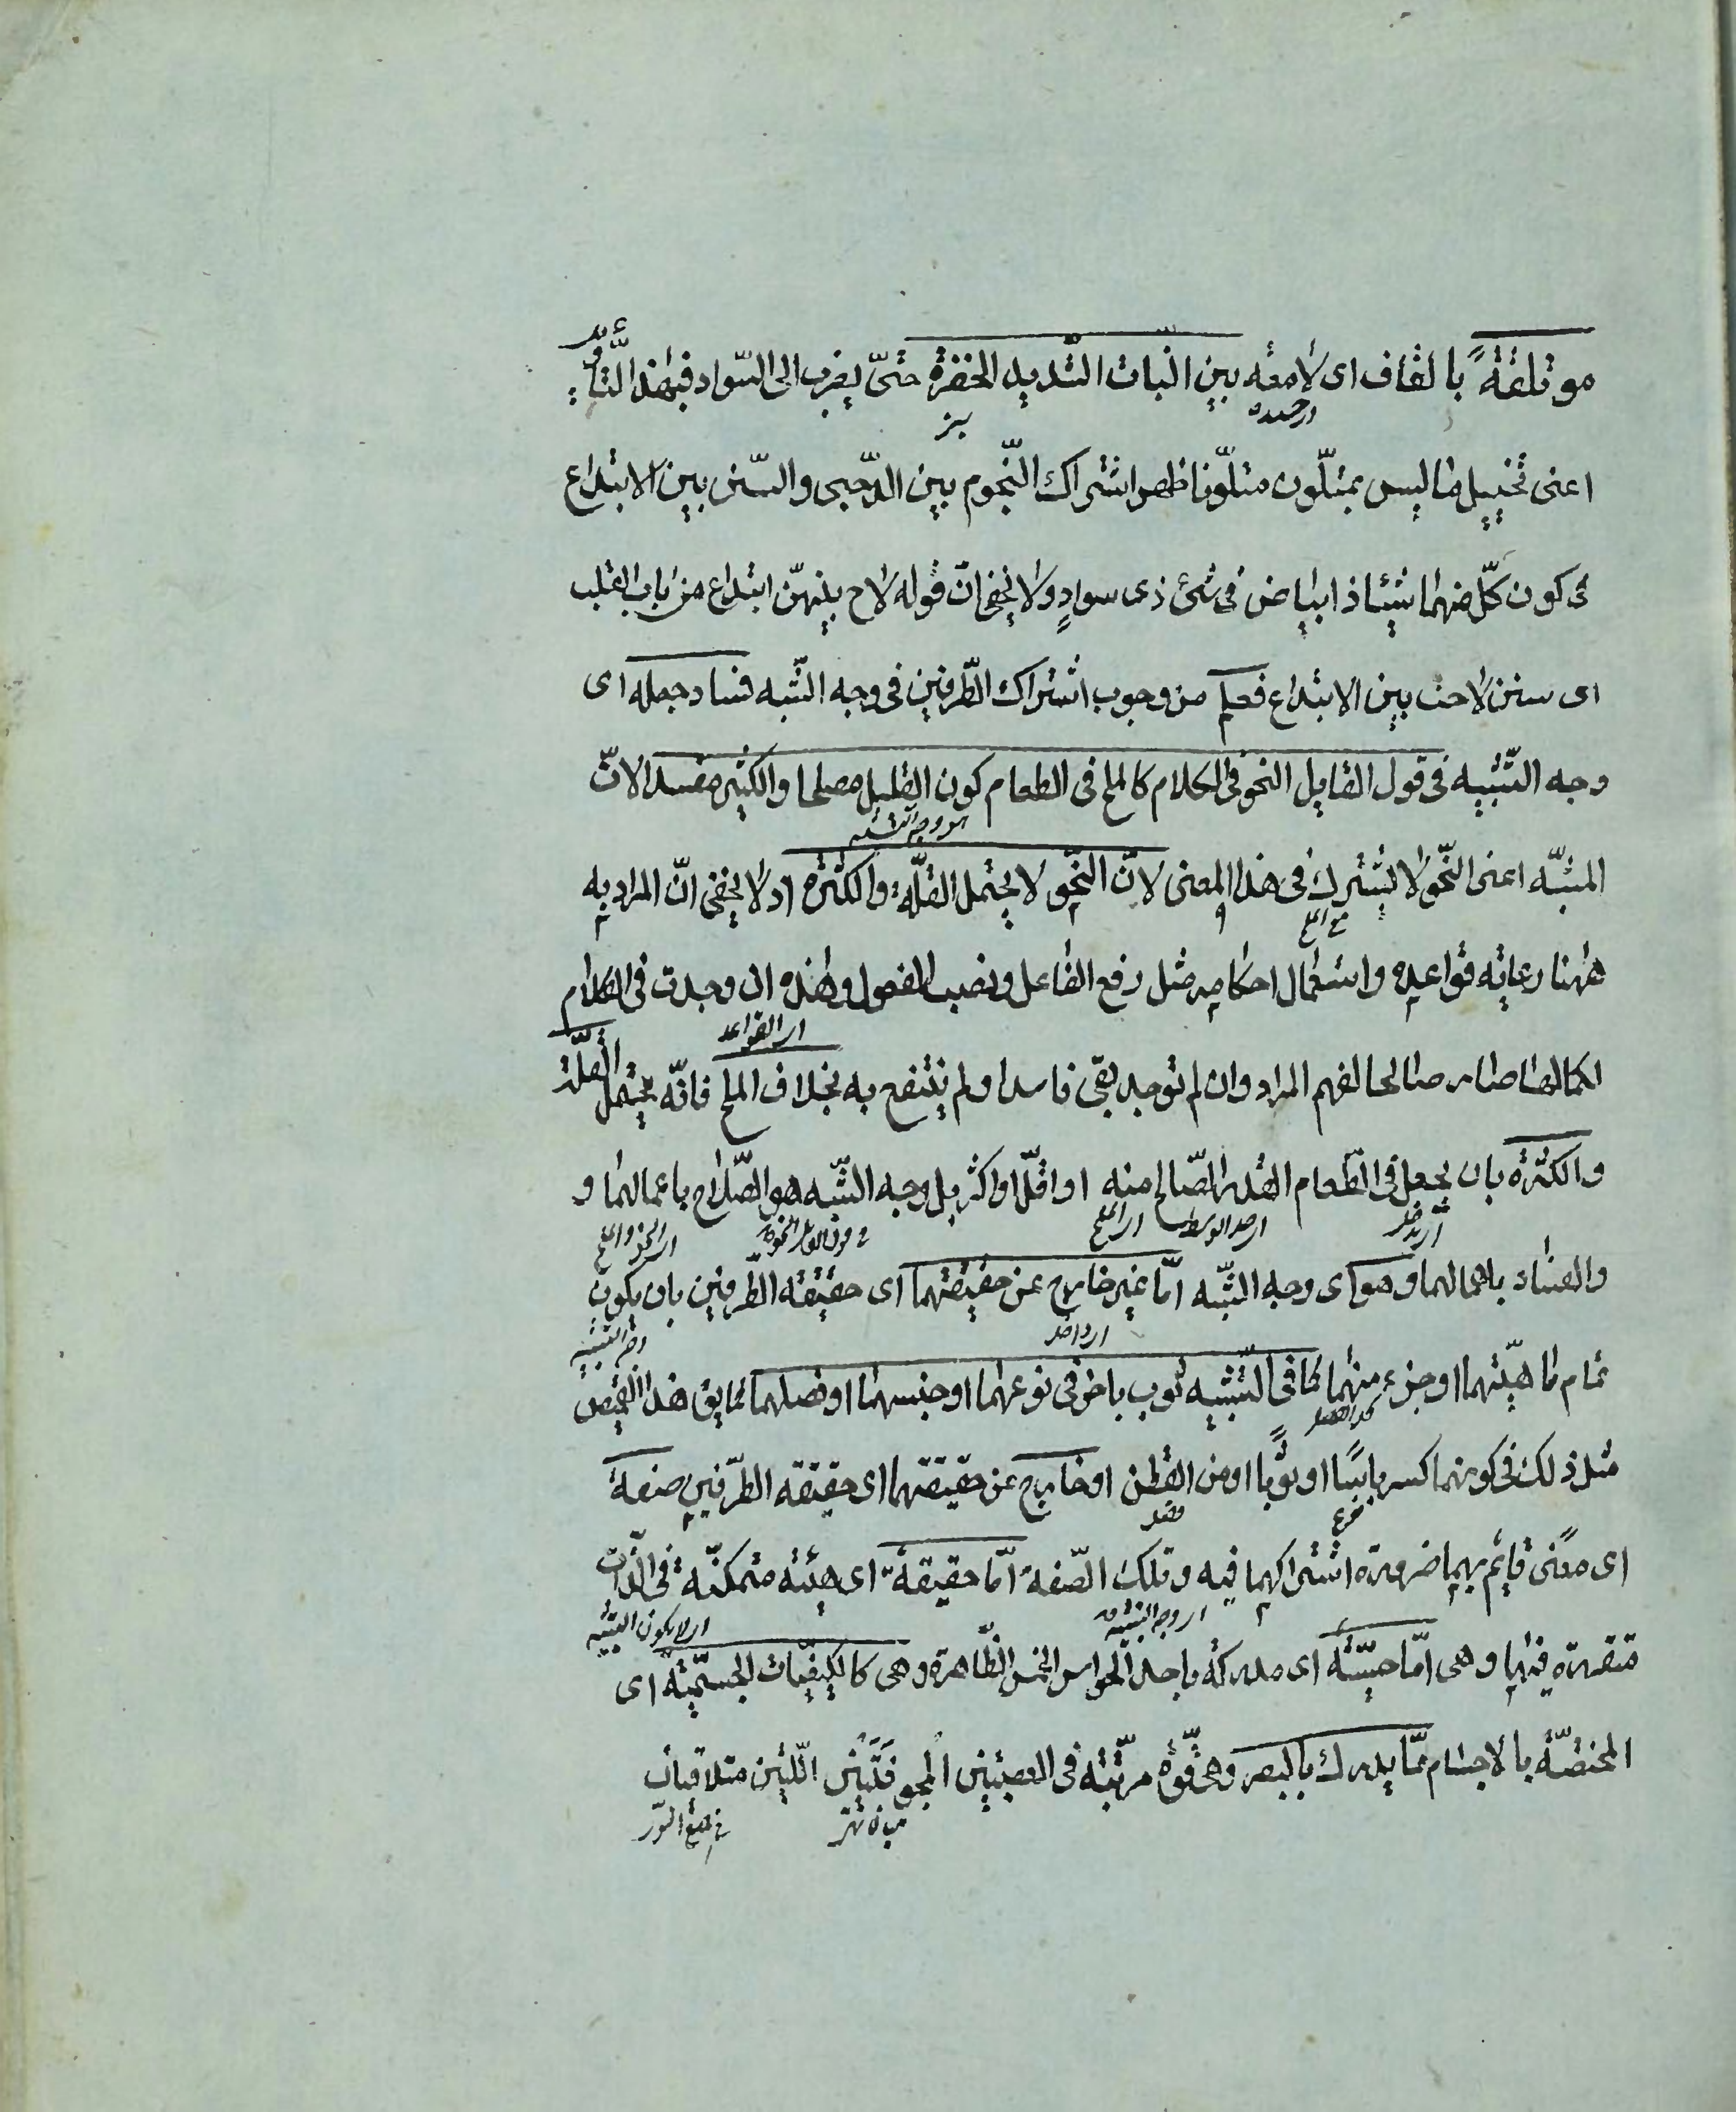 موتلقة بالقاف اى لامعه بين النبات الشديد الخضرة حتى يضرب الى السواد فبهذا التأويل
اعنى تخييل ما ليس بمتلون متلونا ظهر اشتراك النجوم بين الدجى والسنن بين الابتداع
فى كون كل منهما شيئا ذا بياض فى شئ ذى سواد ولا يخفى ان قوله لاح بينهن ابتداع من باب القلب
اى سنن لاحت بين الابتداع فعلم من وجوب اشتراك الطرفين فى وجه الشبه فساد جعله اى
وجه التشبيه فى قول القايل النحو فى الكلام كالملح فى الطعام كون القليل مصلحا والكثير مفسدا لان
هو وجه التشبيه
المشبه اعنى النحو لا يشترك فى هذا المعنى لان النحو لا يحتمل القلة والكثرة اذ لا يخفى ان المراد به
مع الملح
ههنا رعاية قواعده واستعمال احكامه مثل رفع الفاعل ونصب المفعول وهذه ان وجدت فى الكلام
اى القواعد
بكمالها صار صالحا لفهم المراد وان لم توجد بقى فاسدا ولم ينتفع به بخلاف الملح فانه يحتمل القلة
والكثرة بان يجعل فى الطعام القدر الصالح منه او اقل او اكثر بل وجه الشبه هو الصلاح باعمالهما و
اى الملح اى النحو والملح
والفساد باهمالهما وهو اى وجه الشبه اما غير خارج عن حقيقتهما اى حقيقة الطرفين بان يكون
وجه التشبيه
تمام ماهيتهما او جزء منهما كما فى التشبيه ثوب باخر فى نوعهما او جنسهما او فصلهما كما يق هذا القميص
مثل ذلك فى كونهما كرباسا او ثوبا او من القطن او خارج عن حقيقتهما اى حقيقة الطرفين صفة
اى معنى قايم بهما ضرورة اشتراكهما فيه وتلك الصفة اما حقيقة اى هيئة متمكنة فى الذات
اى وجه التشبيه
متقررة فيها وهى اما حسية اى مدركة باحد الحواس الخمس الظاهرة وهى كالكيفيات الجسمية اى
المختصة بالاجسام مما يدرك بالبصر وهى قوة مرتبة فى العصبتين المجوفتين اللتين متلاقيان